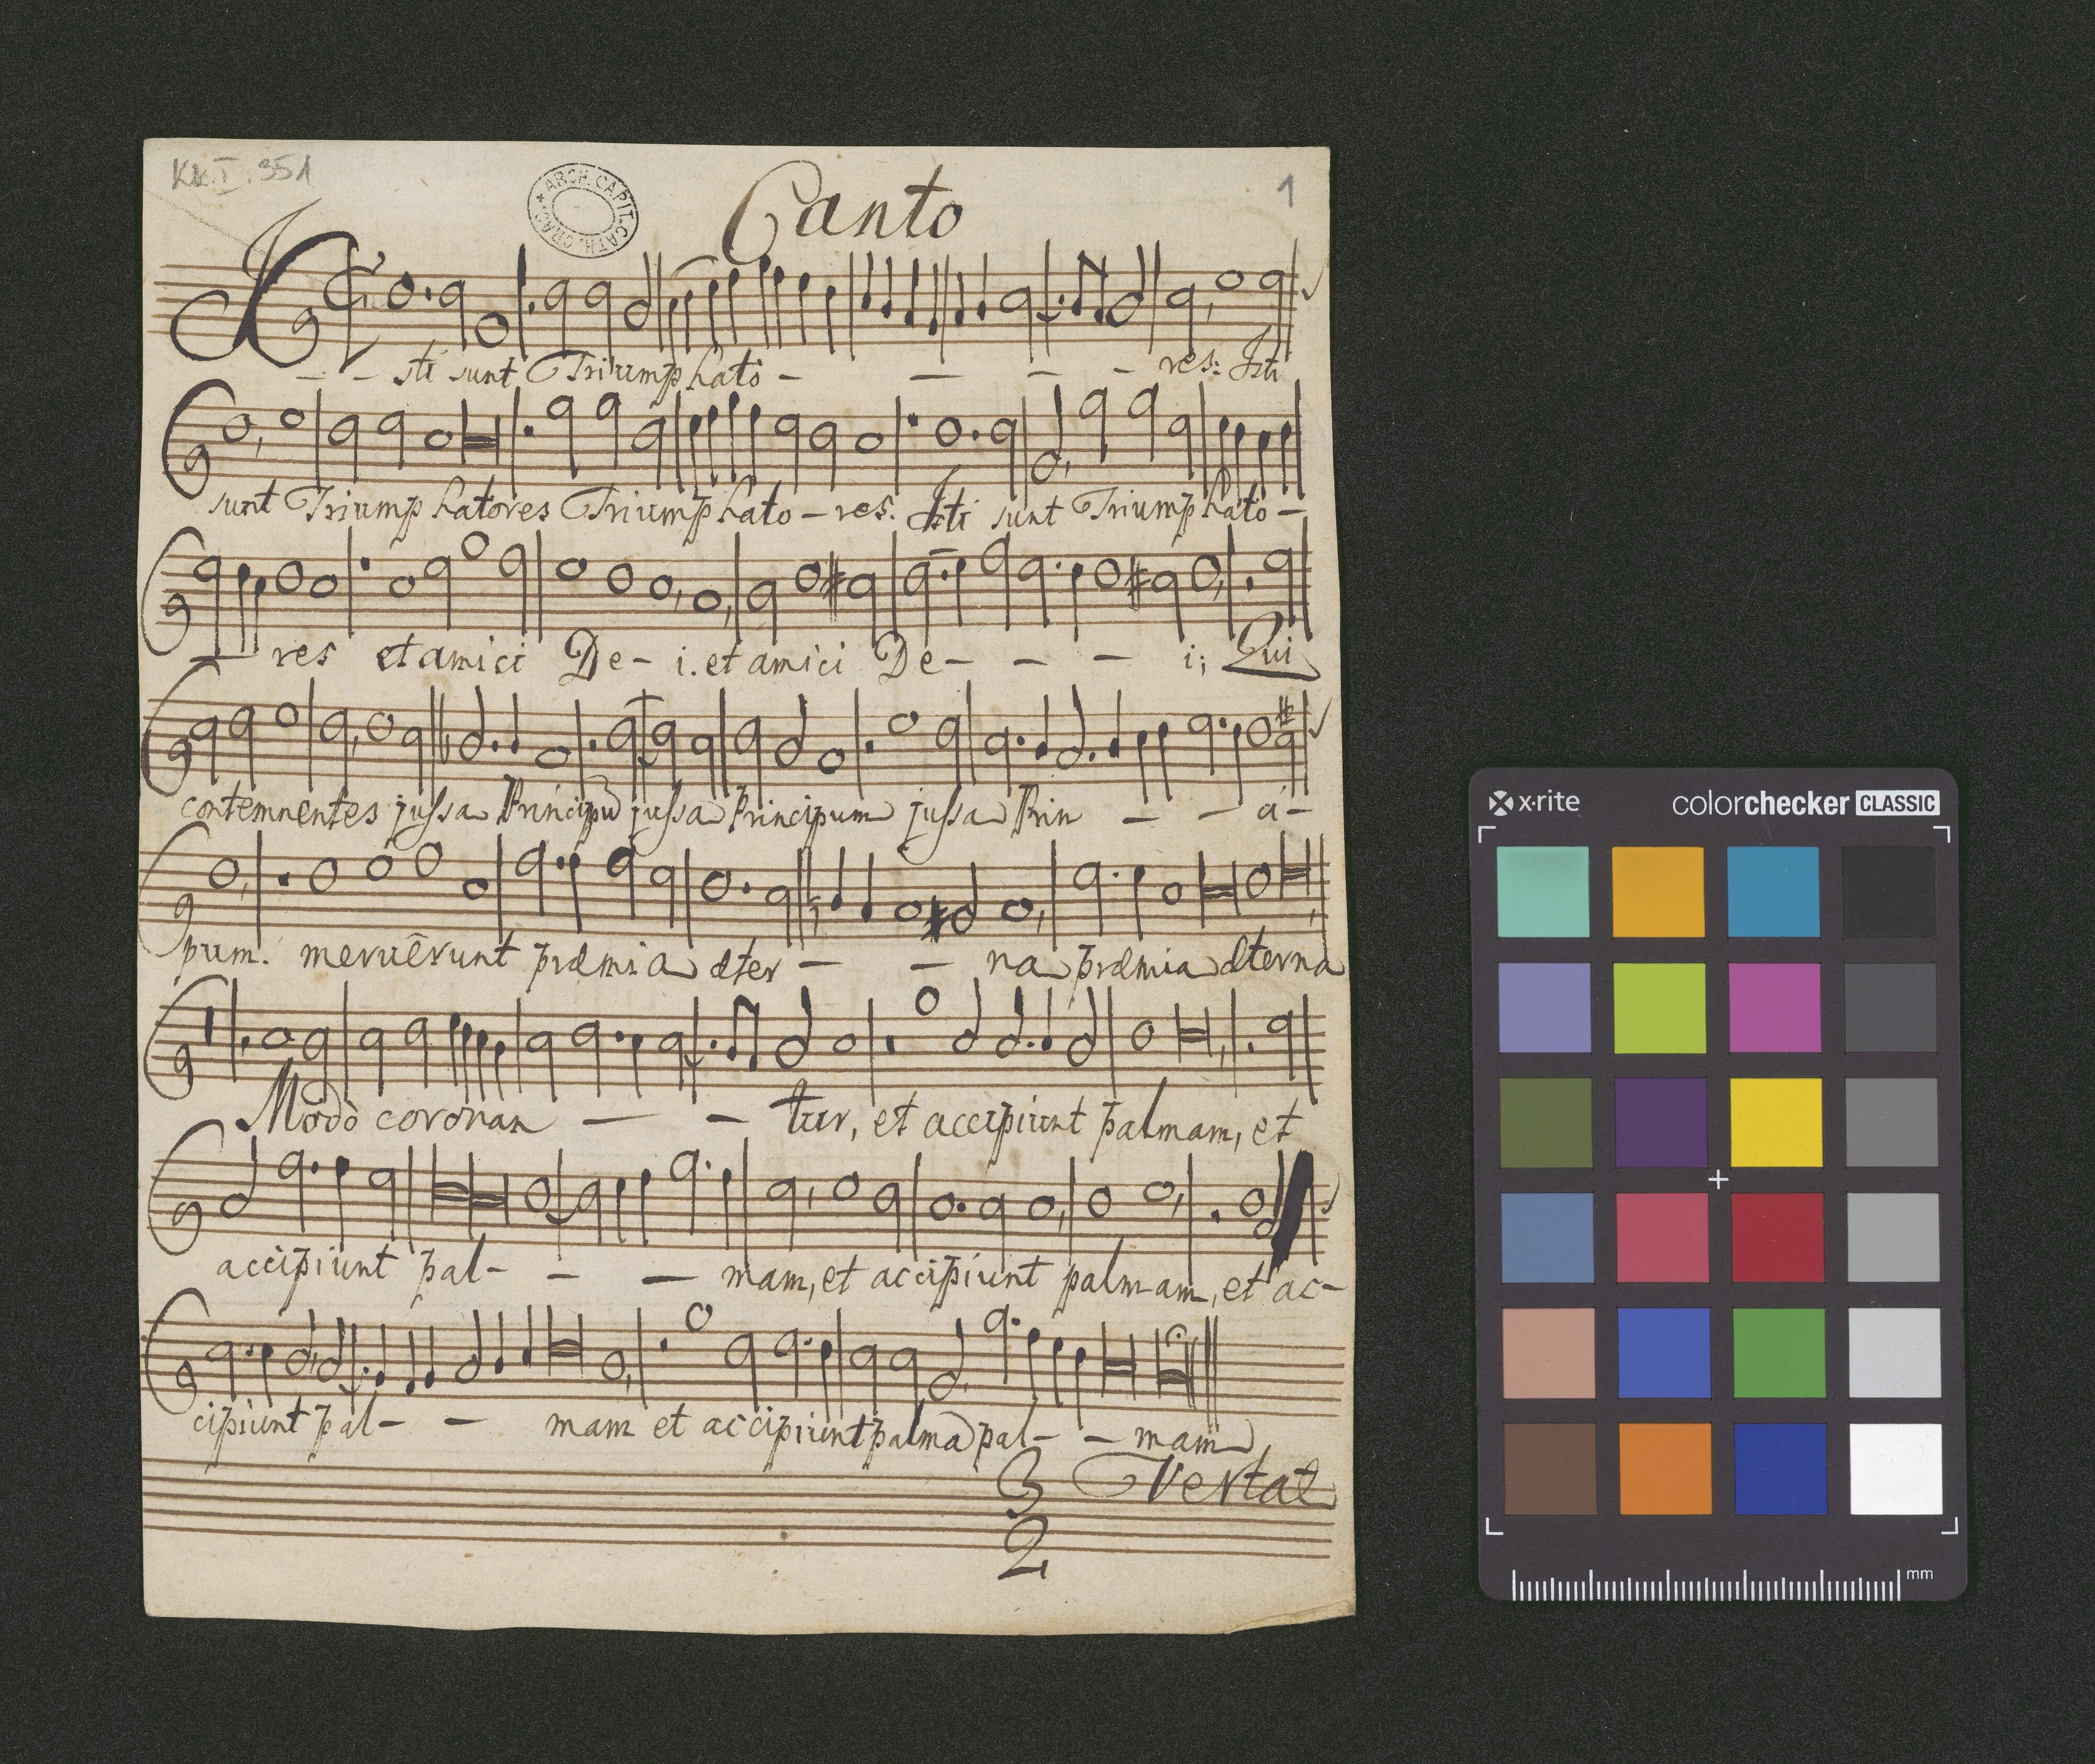 Kk.I.351
ARCH. CAPIT. CATH. CRAC.
Canto
1
Isti sunt Triumphato - - - - res: Isti
sunt Triumphatores Triumphato - res. Isti sunt Triumphato -
- res et amici De - i. et amici De - - - i; Qui
contemnentes jussa Principū jussa Principum jussa Prin - - ci -
pum. meruêrunt præmia æter - - na præmia æterna
Modò coronan - - tur, et accipiunt palmam, et
accipiunt pal - - - mam, et accipiunt palmam, et ac -
cipiunt pal - - mam et accipiunt palmā pal - - mam
Vertat
3
2
x·rite
colorchecker CLASSIC
mm